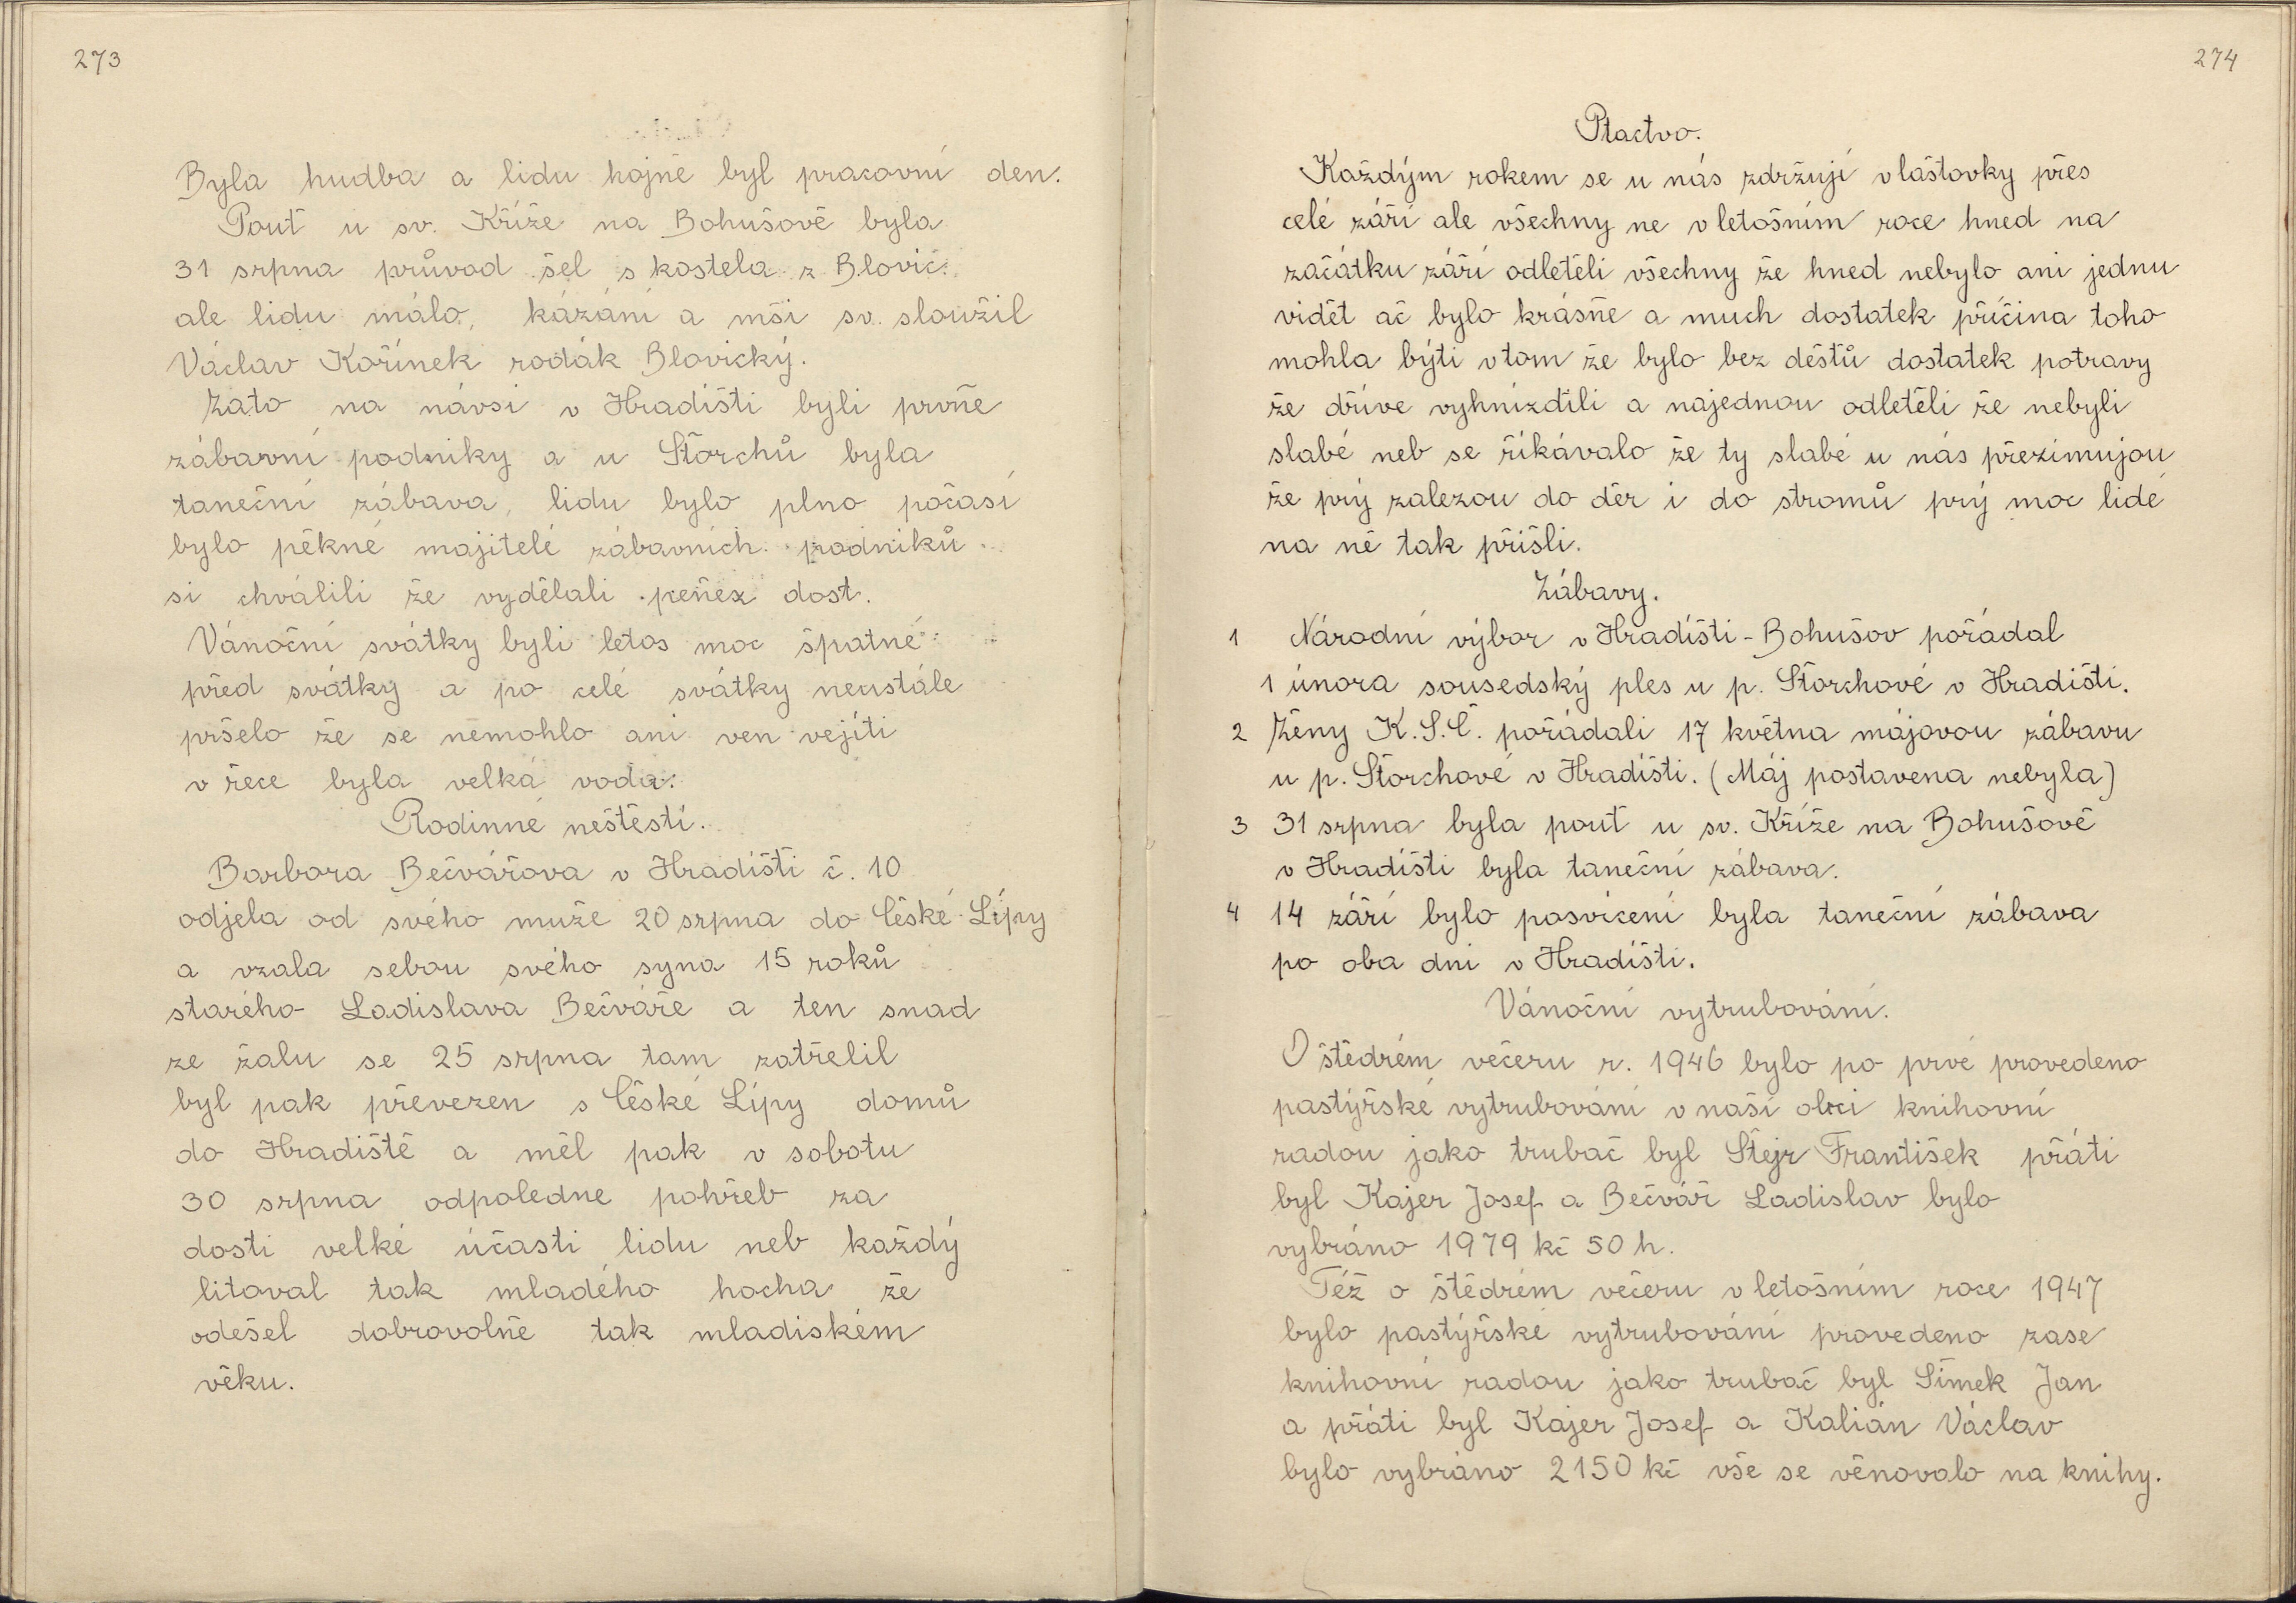 273
Byla hudba a lidu hojně byl pracovní den.
Pouť u sv. Kříže na Bohušově byla
31 srpna průvod šel s kostela z Blovic.
ale lidu málo, kázání a mši sv. sloužil
Václav Kořínek rodák Blovický.
Zato na návsi v Hradišti byli prvně
zábavní podniky a u Štorchů byla
taneční zábava, lidu bylo plno počasí
bylo pěkné majitelé zábavních podniků
si chválili že vydělali peněz dost.
Vánoční svátky byli letos moc špatné
před svátky a po celé svátky neustále
pršelo že se nemohlo ani ven vejíti
v řece byla velká voda.
Rodinné neštěstí.
Barbora Bečvářova v Hradišti č. 10
odjela od svého muže 20 srpna do České Lípy
a vzala sebou svého syna 15 roků
starého Ladislava Bečváře a ten snad
ze žalu se 25 srpna tam zatřelil
byl pak převezen s České Lípy domů
do Hradiště a měl pak v sobotu
30 srpna odpoledne pohřeb za
dosti velké účasti lidu neb každý
litoval tak mladého hocha že
odešel dobrovolně tak mladiském
věku.
274
Ptactvo.
Každým rokem se u nás zdržují vlaštovky přes
celé září ale všechny ne v letošním roce hned na
začátku září odletěli všechny že hned nebylo ani jednu
vidět ač bylo krásně a much dostatek příčina toho
mohla býti v tom že bylo bez deštů dostatek potravy
že dříve vyhnízdili a najednou odletěli že nebyli
slabé neb se říkávalo že ty slabé u nás přezimujou
že prý zalezou do děr i do stromů prý moc lidé
na ně tak přišli.
Zábavy.
1 Národní výbor v Hradišti - Bohušov pořádal
1 února sousedský ples u p. Štorchové v Hradišti.
2 Ženy K.S.Č. pořádali 17 května májovou zábavu
u p. Štorchové v Hradišti. (Máj postavena nebyla)
3 31 srpna byla pouť u sv. Kříže na Bohušově
v Hradišti byla taneční zábava.
4 14 září bylo posvícení byla taneční zábava
po oba dni v Hradišti.
Vánoční vytrubování.
O štědrém večeru r. 1946 bylo po prvé provedeno
pastýřské vytrubování v naší obci knihovní
radou jako trubač byl Štejr František přáti
byl Kajer Josef a Bečvář Ladislav bylo
vybráno 1979 kč 50 h.
Též o štědrém večeru v letošním roce 1947
bylo pastýřské vytrubování provedeno zase
knihovní radou jako trubač byl Šimek Jan
a přáti byl Kajer Josef a Kalián Václav
bylo vybráno 2150 kč vše se věnovalo na knihy.